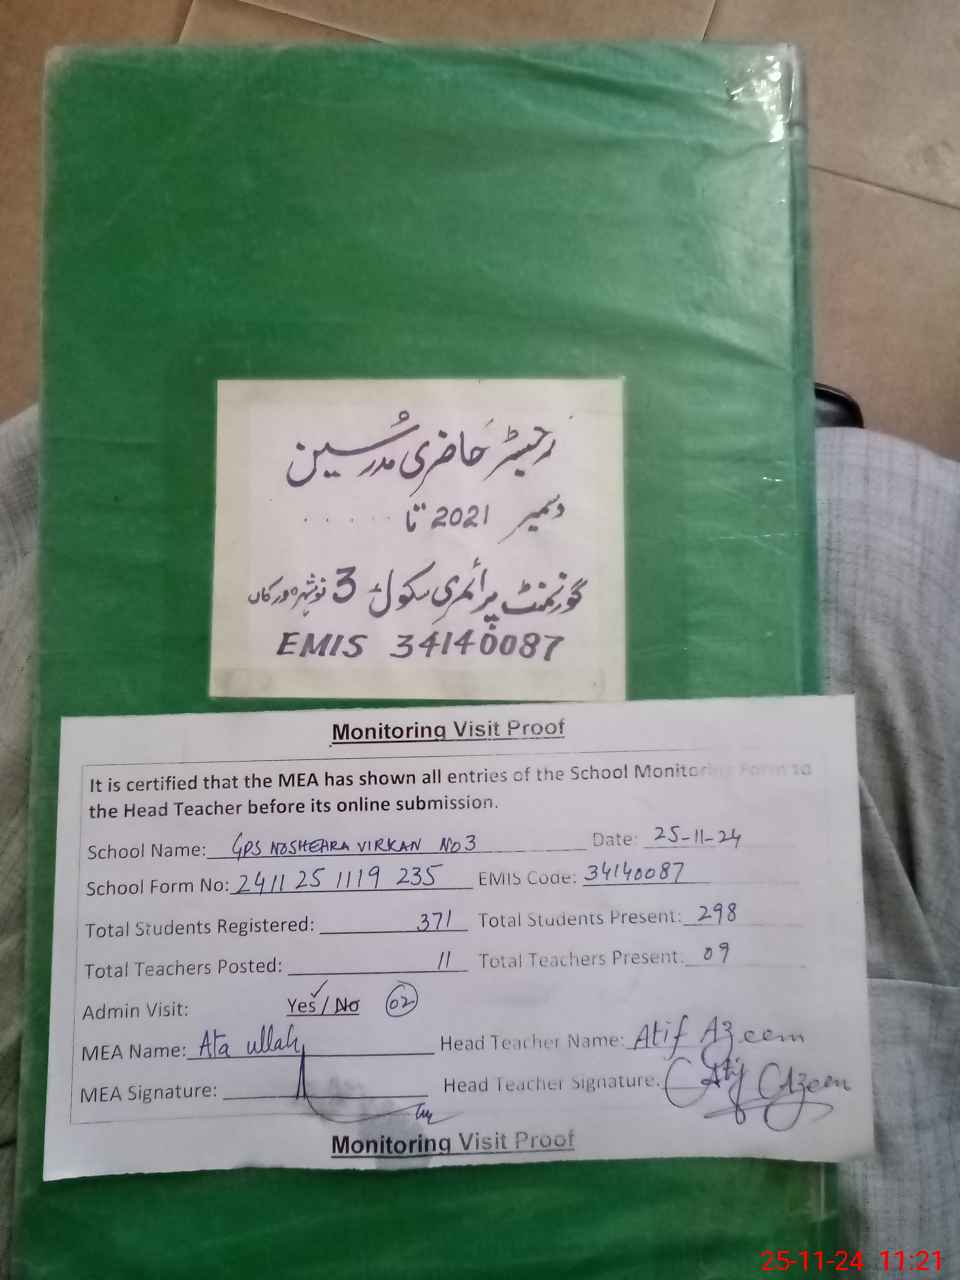 رجسٹر حاضری مدرسین
دسمبر 2021 تا . . . . .
گورنمنٹ پرائمری سکول 3 نوشہرہ ورکاں
EMIS 34140087
Monitoring Visit Proof
It is certified that the MEA has shown all entries of the School Monitoring Form to
the Head Teacher before its online submission.
School Name: GPS NOSHEHRA VIRKAN NO 3 Date: 25-11-24
School Form No: 2411 25 1119 235 EMIS Code: 34140087
Total Students Registered: 371 Total Students Present: 298
Total Teachers Posted: 11 Total Teachers Present: 09
Admin Visit: Yes ✓ / No 02
MEA Name: Ata ullah Head Teacher Name: Atif Azeem
MEA Signature: Head Teacher Signature. Atif Azeem
Monitoring Visit Proof
25-11-24 11:21